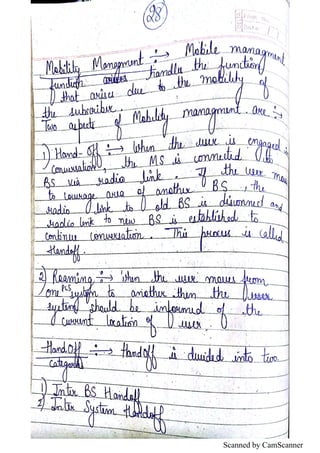 28
Mobility Management :→ Mobile managment
function handles the function
that arises due to the mobility of
the subscriber.
Two aspects of Mobility managment are :→
1) Hand-Off :→ When the user is engaged in
conversation, the MS is connected to
BS via radio link. If the user mov
to courage area of another BS, the
radio link to old BS is disconnect and
radio link to new BS is established to
continue conversation. This process is called
Handoff.
2) Roaming :→ When the user moves from
one system to another then the user
system should be informed of the
current location of user.
HandOff :→ HandOff is divided into two
categories
1) Inter BS Handoff
2) Inter System Handoff
Scanned by CamScanner